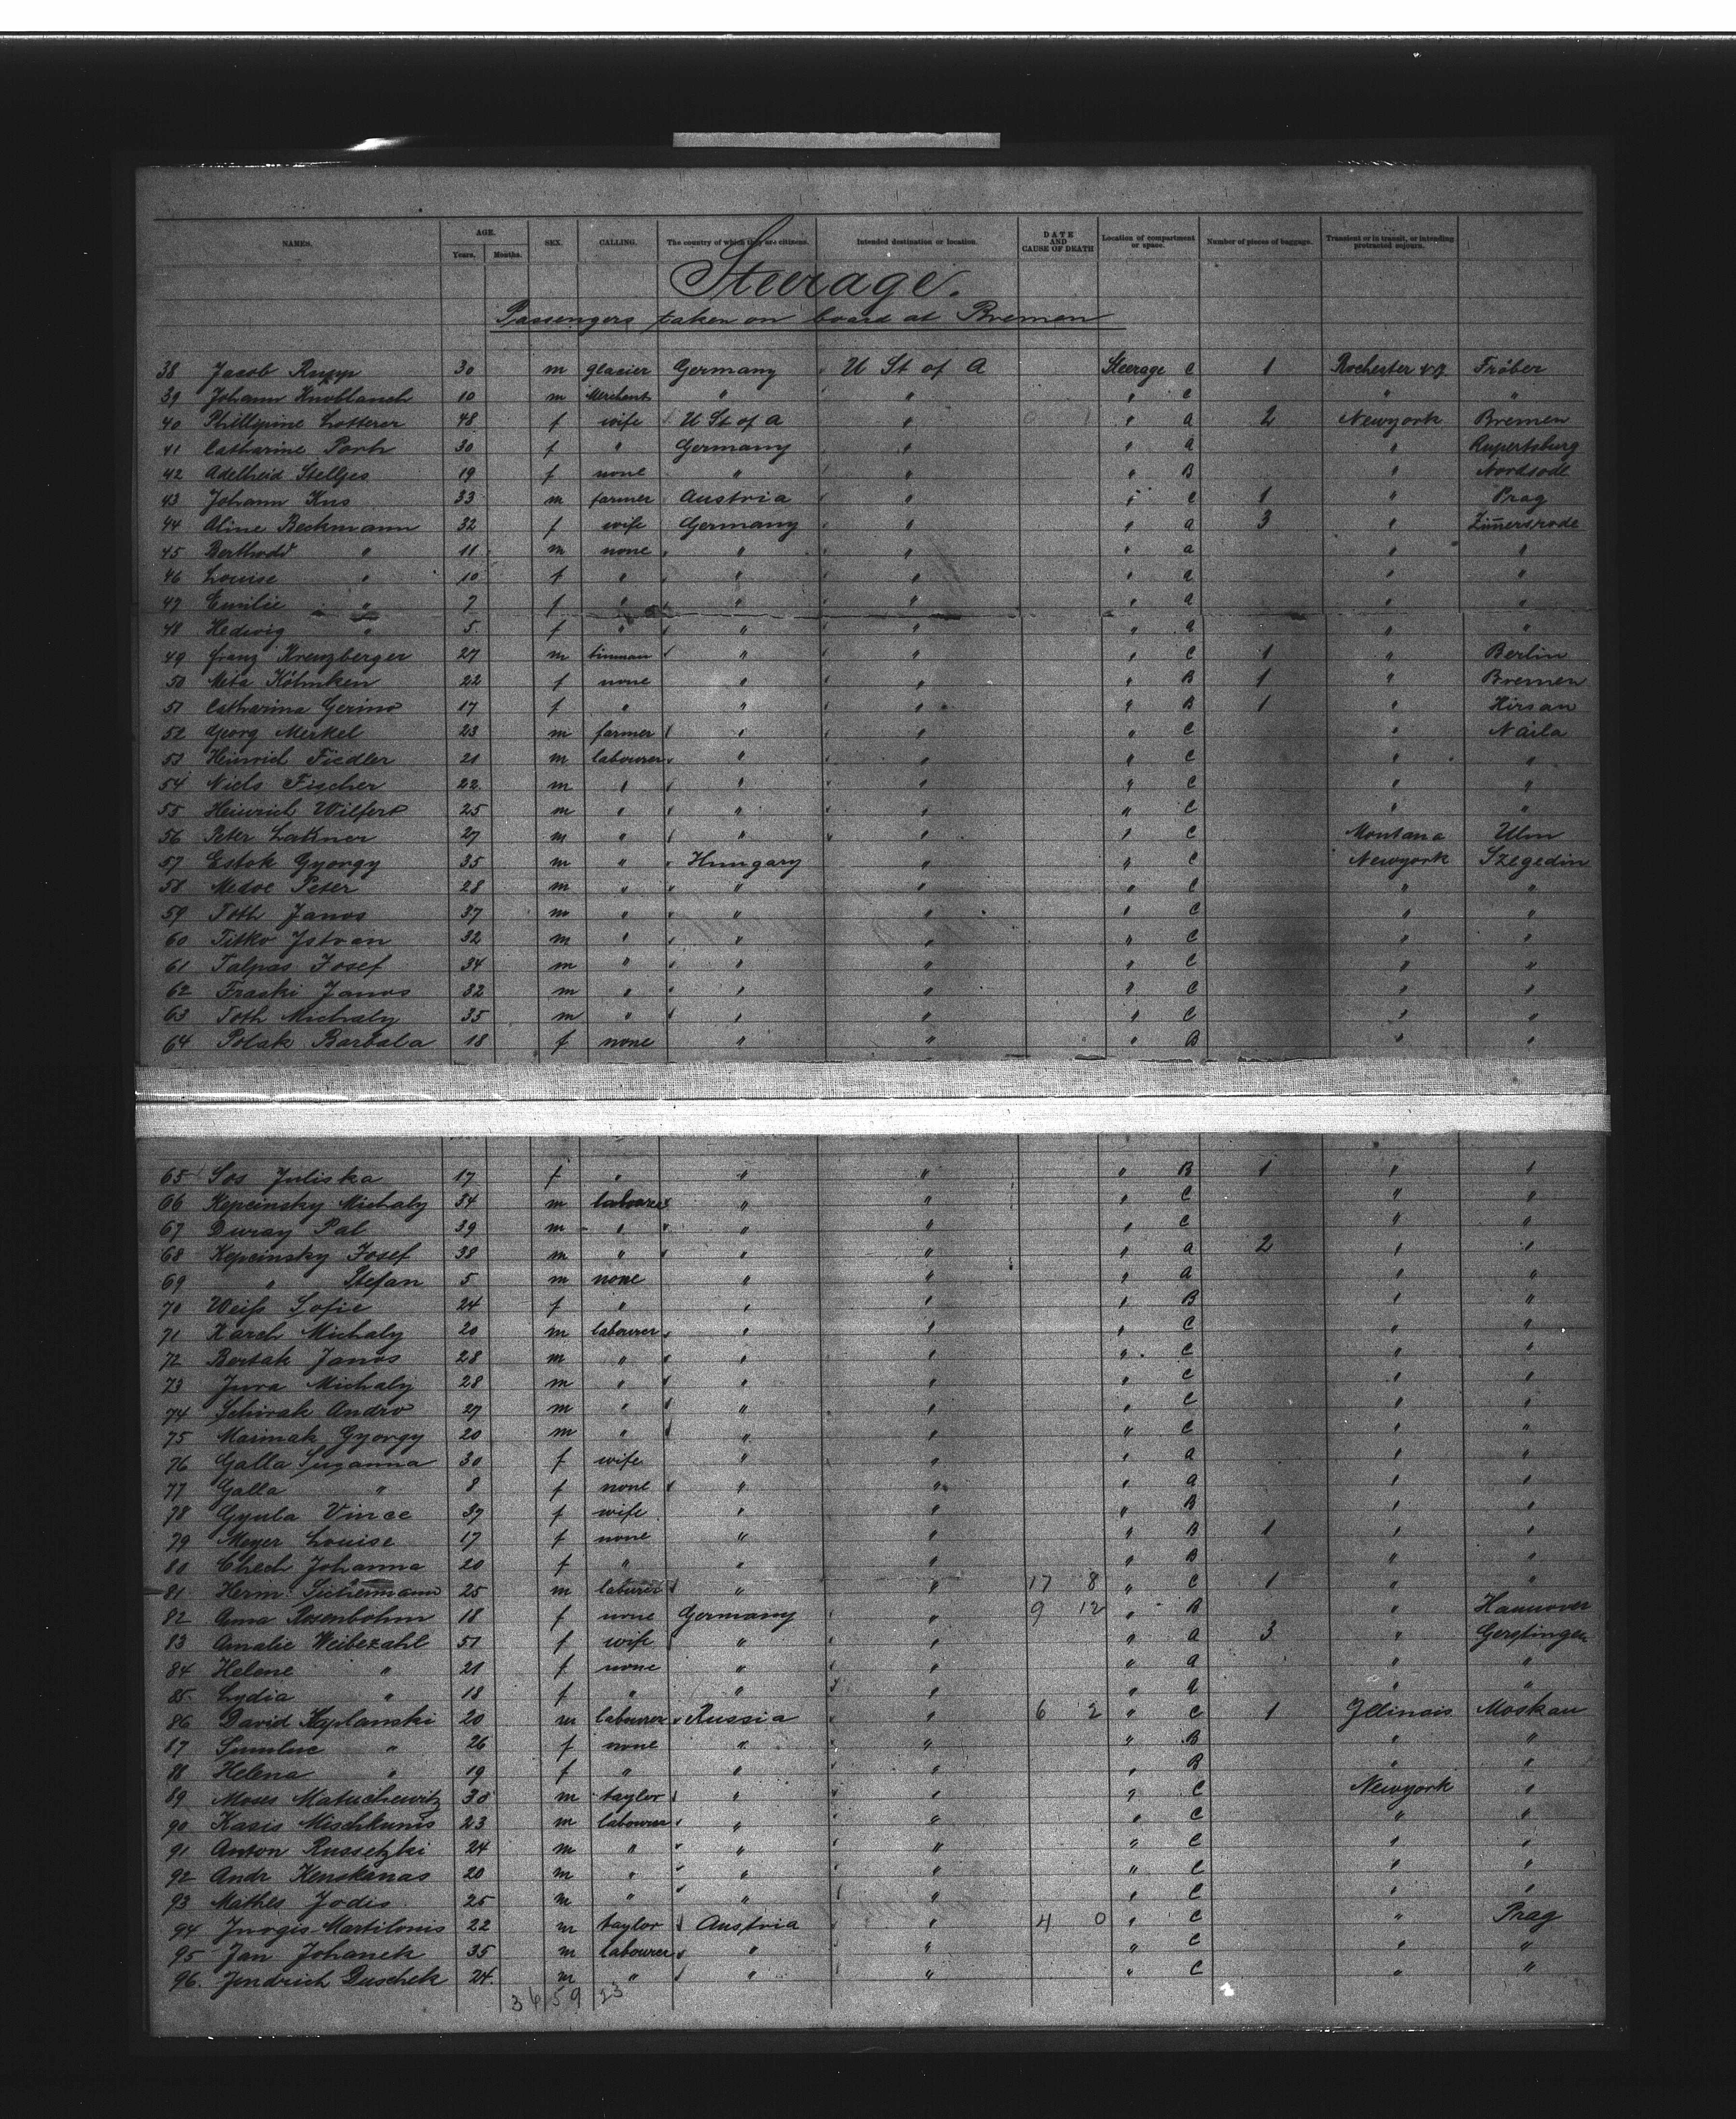 NAMES. AGE. Years. Months. SEX. CALLING. The country of which they are citizens. Intended destination or location. DATE AND CAUSE OF DEATH Location of compartment or space. Number of pieces of baggage. Transient or in transit, or intending protracted sojourn.
Steerage.
Passengers taken on board at Bremen
38 Jacob Rupp 30 m glasier Germany U St of A Steerage C 1 Rochester Fröber
39 Johann Knoblauch 10 m Merchant " " " C " "
40 Phillipine Lotterer 48 f wife U St of A " " a 2 Newyork Bremen
41 Catharine Porth 30 f " Germany " " a " Rupertsburg
42 Adelheid Stelljes 19 f none " " " B " Nordsode
43 Johann Kus 33 m farmer Austria " " C 1 " Prag
44 Aline Beckmann 32 f wife Germany " " a 3 " Zimersrode
45 Berthold " 11 m none " " " a " "
46 Louise " 10 f " " " " a " "
47 Emilie " 7 f " " " " a " "
48 Hedwig " 5 f " " " " a " "
49 Franz Kreuzberger 27 m tinman " " " C 1 " Berlin
50 Meta Köhnken 22 f none " " " B 1 " Bremen
51 Catharina Gerino 17 f " " " " B 1 " Hirsau
52 Georg Merkel 23 m farmer " " " C " Naila
53 Heinrich Fiedler 21 m labourer " " " C " "
54 Niels Fischer 22 m " " " " C " "
55 Heinrich Wilfert 25 m " " " " C " "
56 Peter Lakner 27 m " " " " C Montana Ulm
57 Estok Gyorgy 35 m " Hungary " " C Newyork Szegedin
58 Medve Peter 28 m " " " " C " "
59 Toth Janos 37 m " " " " C " "
60 Titko Istvan 32 m " " " " C " "
61 Talpas Josef 34 m " " " " C " "
62 Fraski Janos 32 m " " " " C " "
63 Toth Michaly 35 m " " " " C " "
64 Polak Barbala 18 f none " " " B " "
65 Sos Juliska 17 f " " " " B 1 " "
66 Kepcinsky Michaly 34 m labourer " " " C " "
67 Duray Pal 39 m " " " " C " "
68 Kepcinsky Josef 38 m " " " " a 2 " "
69 " Stefan 5 m none " " " a " "
70 Weiß Sofie 24 f " " " " B " "
71 Karch Michaly 20 m labourer " " " C " "
72 Bertak Janos 28 m " " " " C " "
73 Jura Michaly 28 m " " " " C " "
74 Schirak Andro 27 m " " " " C " "
75 Marmak Gyorgy 20 m " " " " C " "
76 Galla Suzanna 30 f wife " " " a " "
77 Galla " 8 f none " " " a " "
78 Gyula Vince 37 f wife " " " B " "
79 Meyer Louise 17 f none " " " B 1 " "
80 Chech Johanna 20 f " " " " B " "
81 Herm. Sichermann 25 m labourer " " 17 8 " C 1 " "
82 Anna Rosenbohm 18 f none Germany " 9 12 " B " Hannover
83 Amalie Weibezahl 51 f wife " " " a 3 " Gerstingen
84 Helene " 21 f none " " " a " "
85 Lydia " 18 f " " " " a " "
86 David Kaplanski 20 m labourer Russia " 6 2 " C 1 Illinois Moskau
87 " 26 f none " " " B " "
88 Helena " 19 f " " " " B " "
89 Moses Matuchewitz 30 m taylor " " " C Newyork "
90 Kasis Mischkunis 23 m labourer " " " C " "
91 Anton Russetzki 24 m " " " " C " "
92 Andr Kenskanas 20 m " " " " C " "
93 Mathes Jodis 25 m " " " " C " "
94 Jnogis Martilonis 22 m taylor Austria " 4 0 " C " Prag
95 Jan Johanek 35 m labourer " " " C " "
96. Jindrich Duschek 24 m " " " " C " "